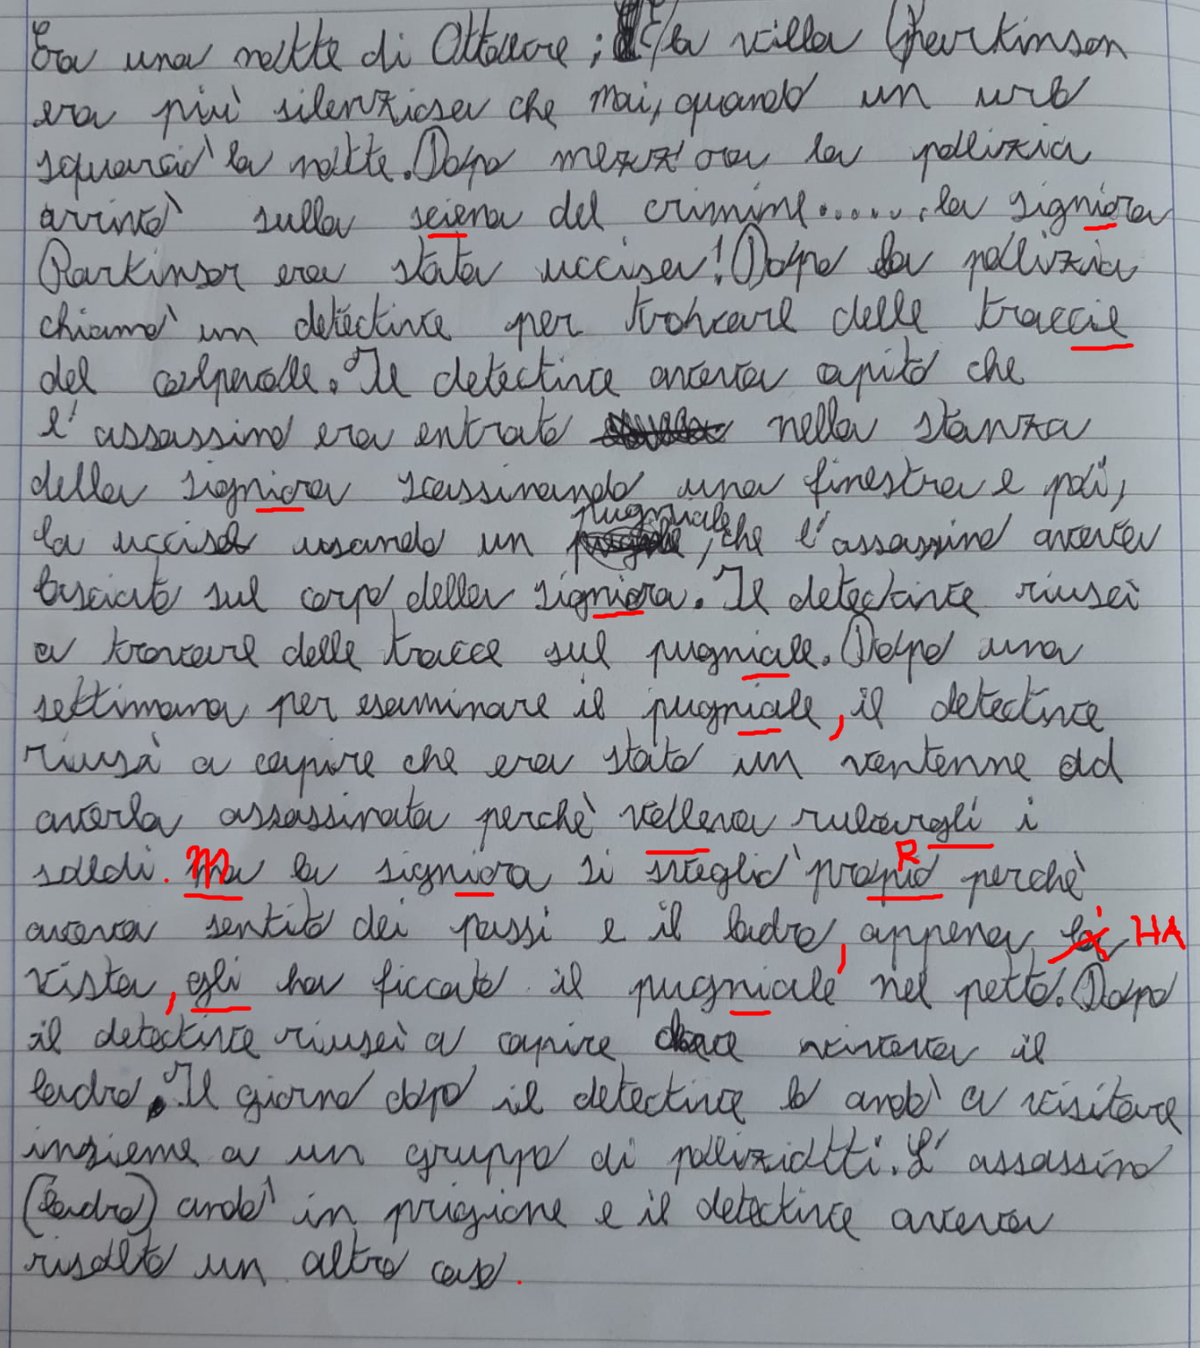 Era una notte di Ottobre; la villa Parkinson
era più silenziosa che mai, quando un urlo
squarciò la notte. Dopo mezz'ora la polizia
arrivò sulla sciena del crimine......la signiora
Parkinson era stata uccisa! Dopo la polizia
chiamò un detective per trovare delle traccie
del colpevole. Il detective aveva capito che
l'assassino era entrato nella stanza
della signiora scassinando una finestra e poi,
pugniale
la uccise usando un , che l'assassino aveva
lasciato sul corpo della signiora. Il detective riuscì
a trovare delle tracce sul pugniale. Dopo una
settimana per esaminare il pugniale, il detective
riuscì a capire che era stato un ventenne ad
averla assassinata perchè volleva rubargli i
soldi. Ma la signiora si svegliò propio R perchè
aveva sentito dei passi e il ladro, appena HA
vista, gli ha ficcato il pugniale nel petto. Dopo
il detective riuscì a capire dove viveva il
ladro. Il giorno dopo il detective lo andò a visitare
insieme a un gruppo di poliziotti. L'assassino
(ladro) andò in prigione e il detective aveva
risolto un altro caso.